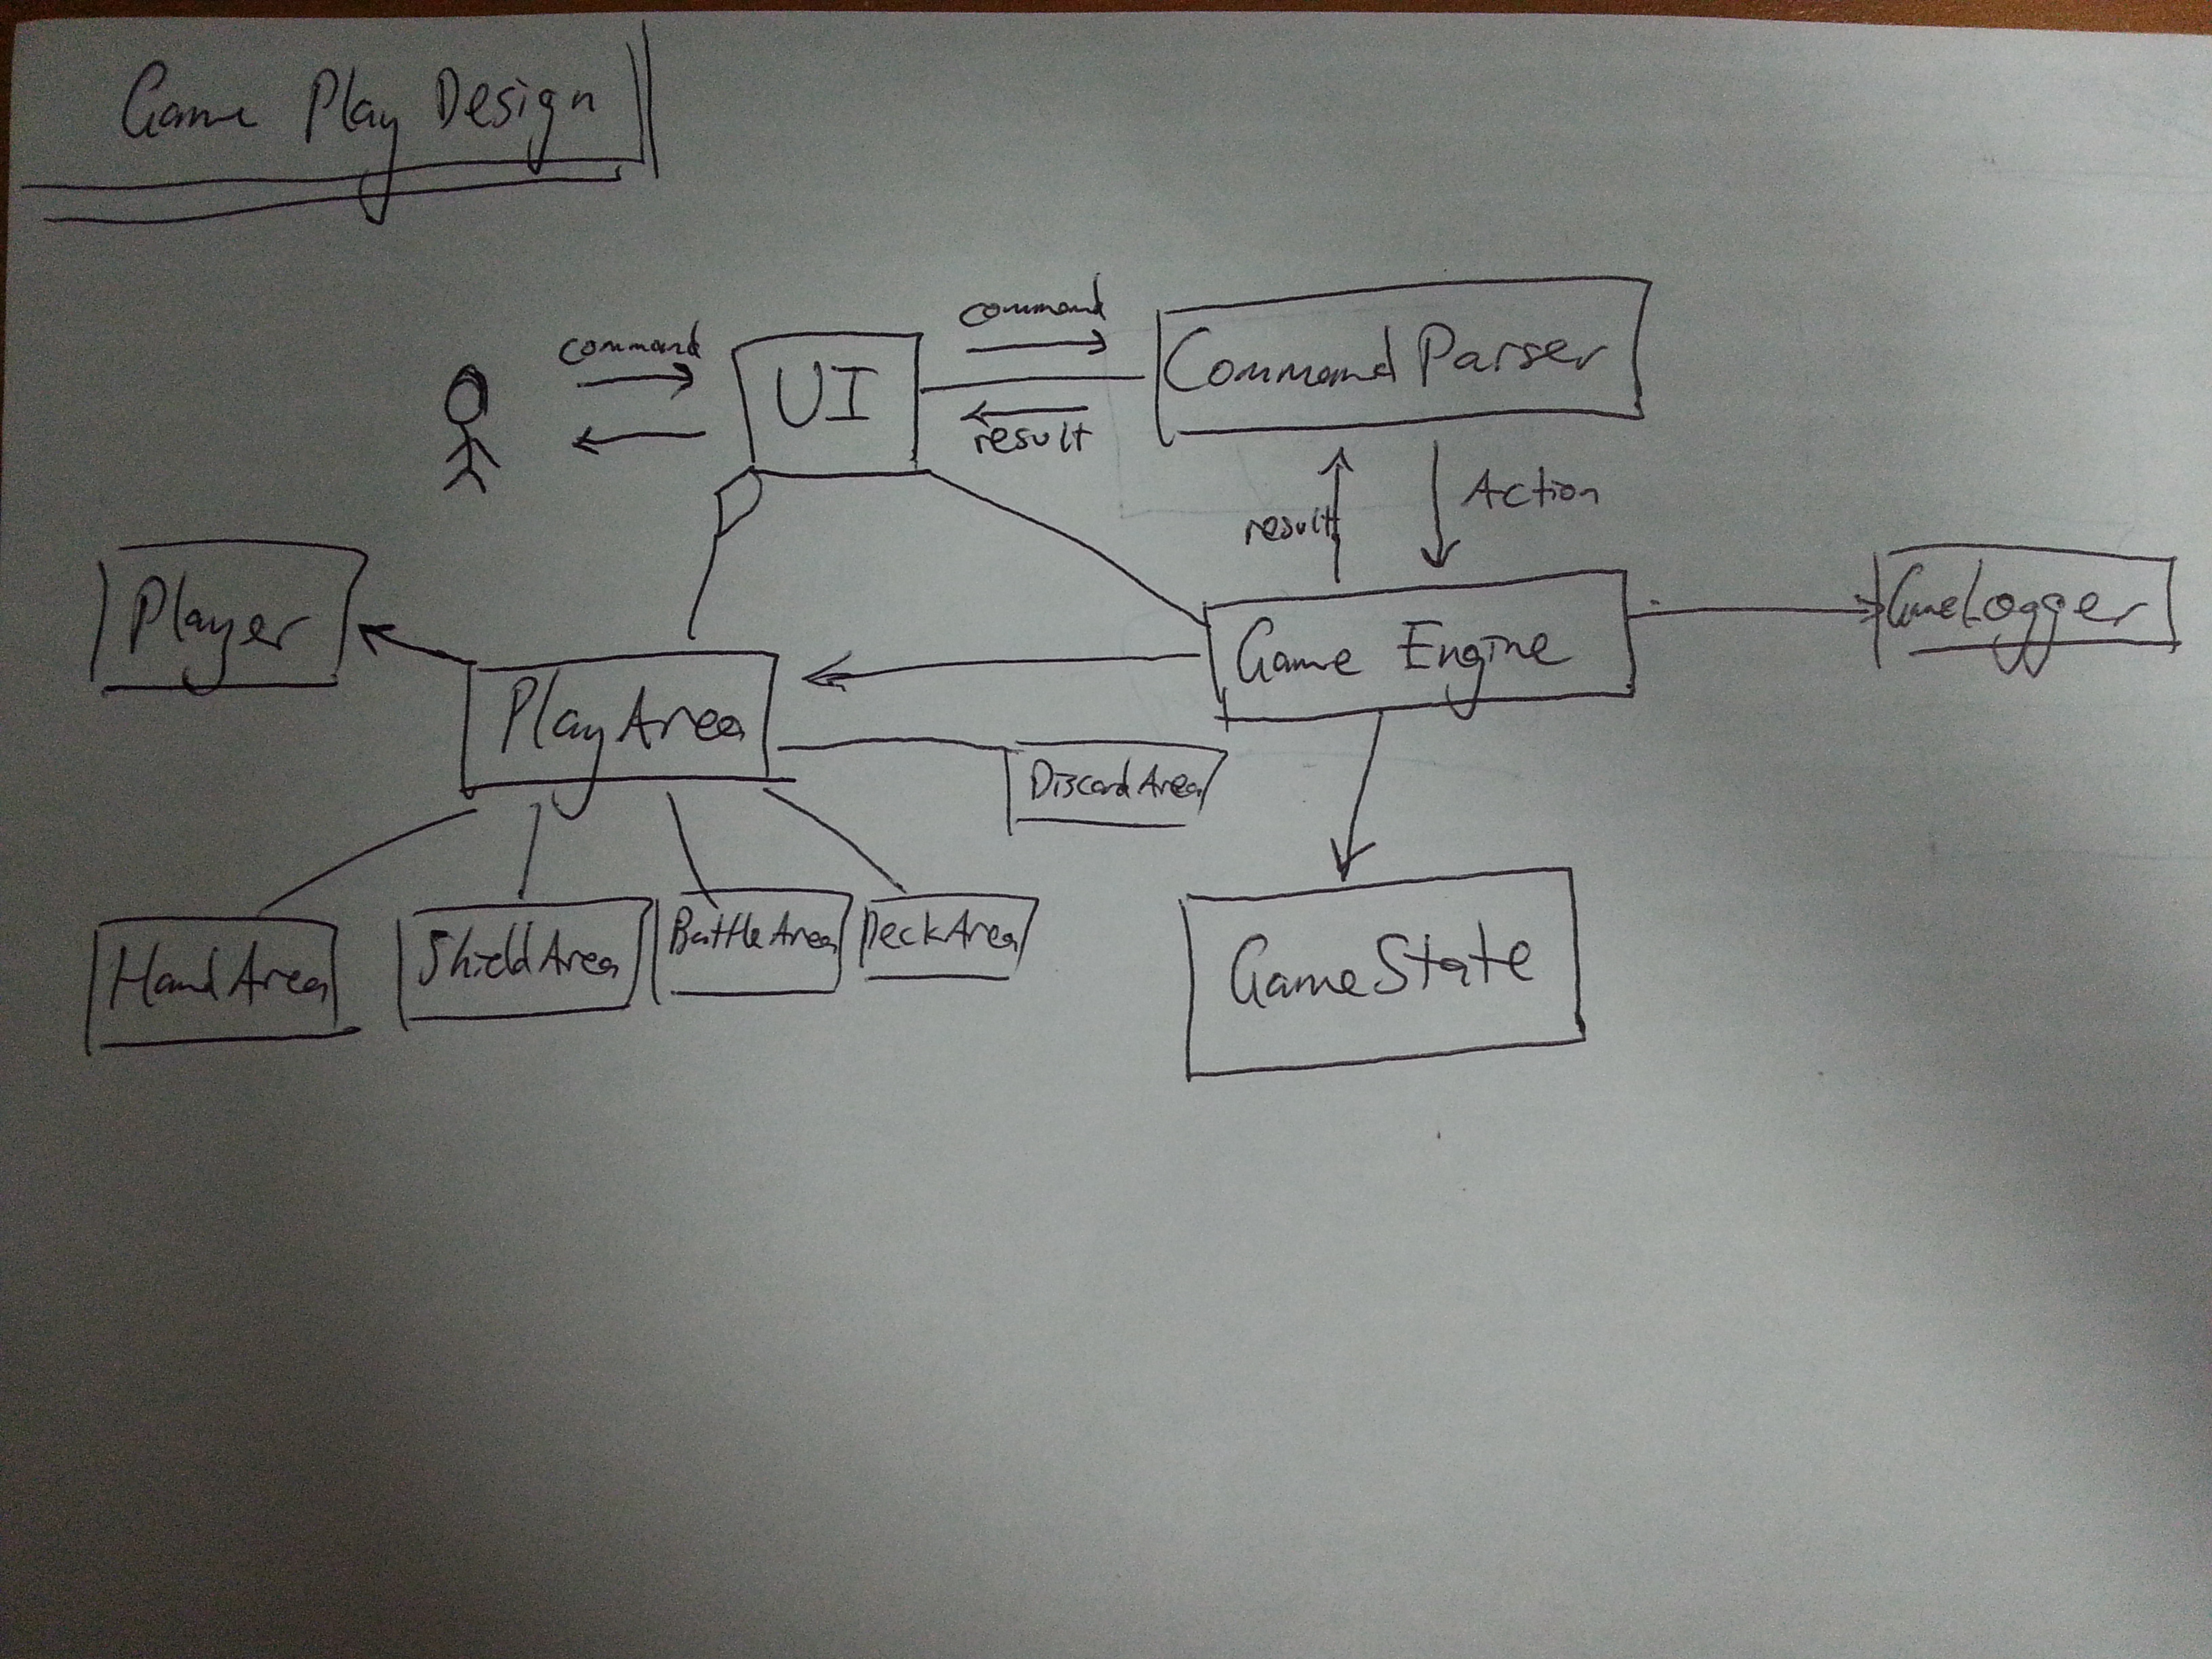 Game Play Design
command
command
UI
CommandParser
result
result
Action
Player
Game Engine
GameLogger
PlayArea
DiscardArea
HandArea
ShieldArea
BattleArea
DeckArea
GameState